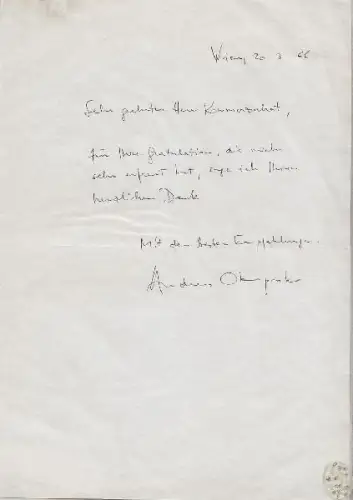 Wien, 20 3 66
Sehr geehrter Herr Kommerzialrat,
für Ihre Gratulation, die mich
sehr erfreut hat, sage ich Ihnen
herzlichen Dank
Mit den besten Empfehlungen
Andreas